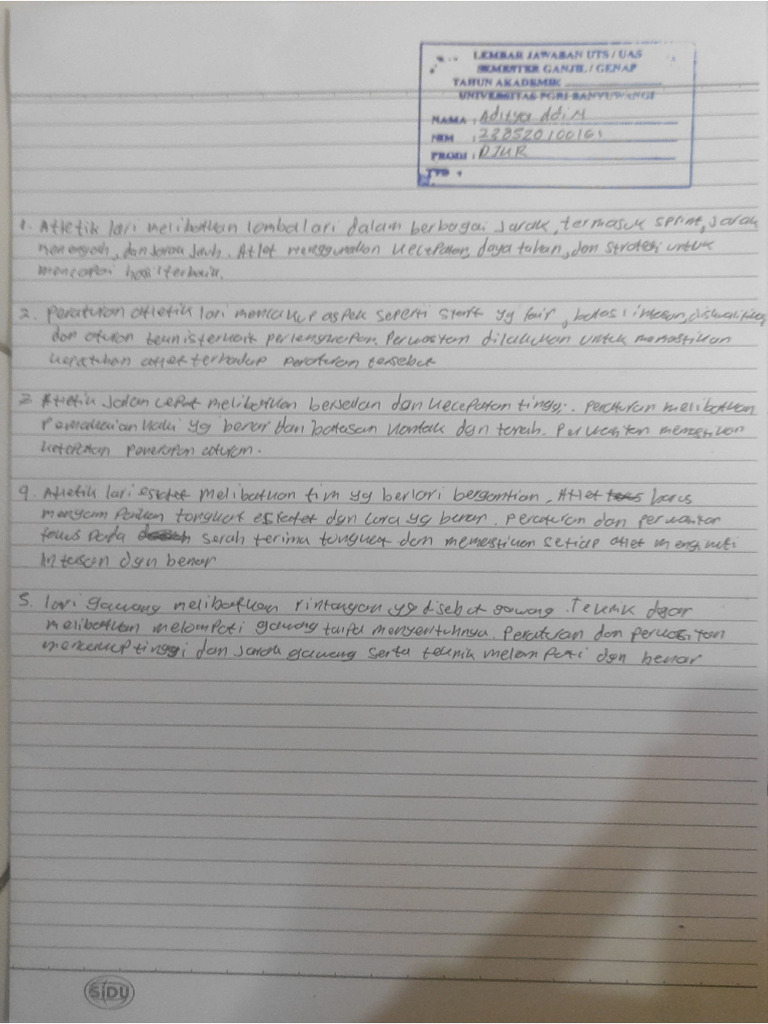 LEMBAR JAWABAN UTS / UAS
SEMESTER GANJIL / GENAP
TAHUN AKADEMIK
UNIVERSITAS PGRI BANYUWANGI
NAMA : Aditya ddi M
NIM :
PRODI :
TTD :
1. Atletik lari melibatkan lomba lari dalam berbagai jarak, termasuk sprint, jarak
menengah, dan jarak jauh. Atlet menggunakan kecepatan, daya tahan, dan strategi untuk
mencapai hasil terbaik.
2. Peraturan atletik lari mencakup aspek seperti start yg fair, batas lintasan, diskualifikasi,
dan aturan teknis terkait perlengkapan. Perwasitan dilakukan untuk memastikan
kepatuhan atlet terhadap peraturan tersebut
3 Atletik jalan cepat melibatkan berjalan dan kecepatan tinggi. peraturan melibatkan
pemakaian kaki yg benar dan batasan kontak dgn tanah. Perwasitan memastikan
ketepatan penerapan aturan.
4. Atletik lari estafet melibatkan tim yg berlari bergantian, Atlet harus
menyampaikan tongkat estafet dgn cara yg benar. Peraturan dan perwasitan
fokus pada serah terima tongkat dan memastikan setiap atlet mengikuti
lintasan dgn benar
5. lari gawang melibatkan rintangan yg disebut gawang. Teknik dasar
melibatkan melompati gawang tanpa menyentuhnya. Peraturan dan perwasitan
mencakup tinggi dan jarak gawang serta teknik melompati dgn benar
SiDU